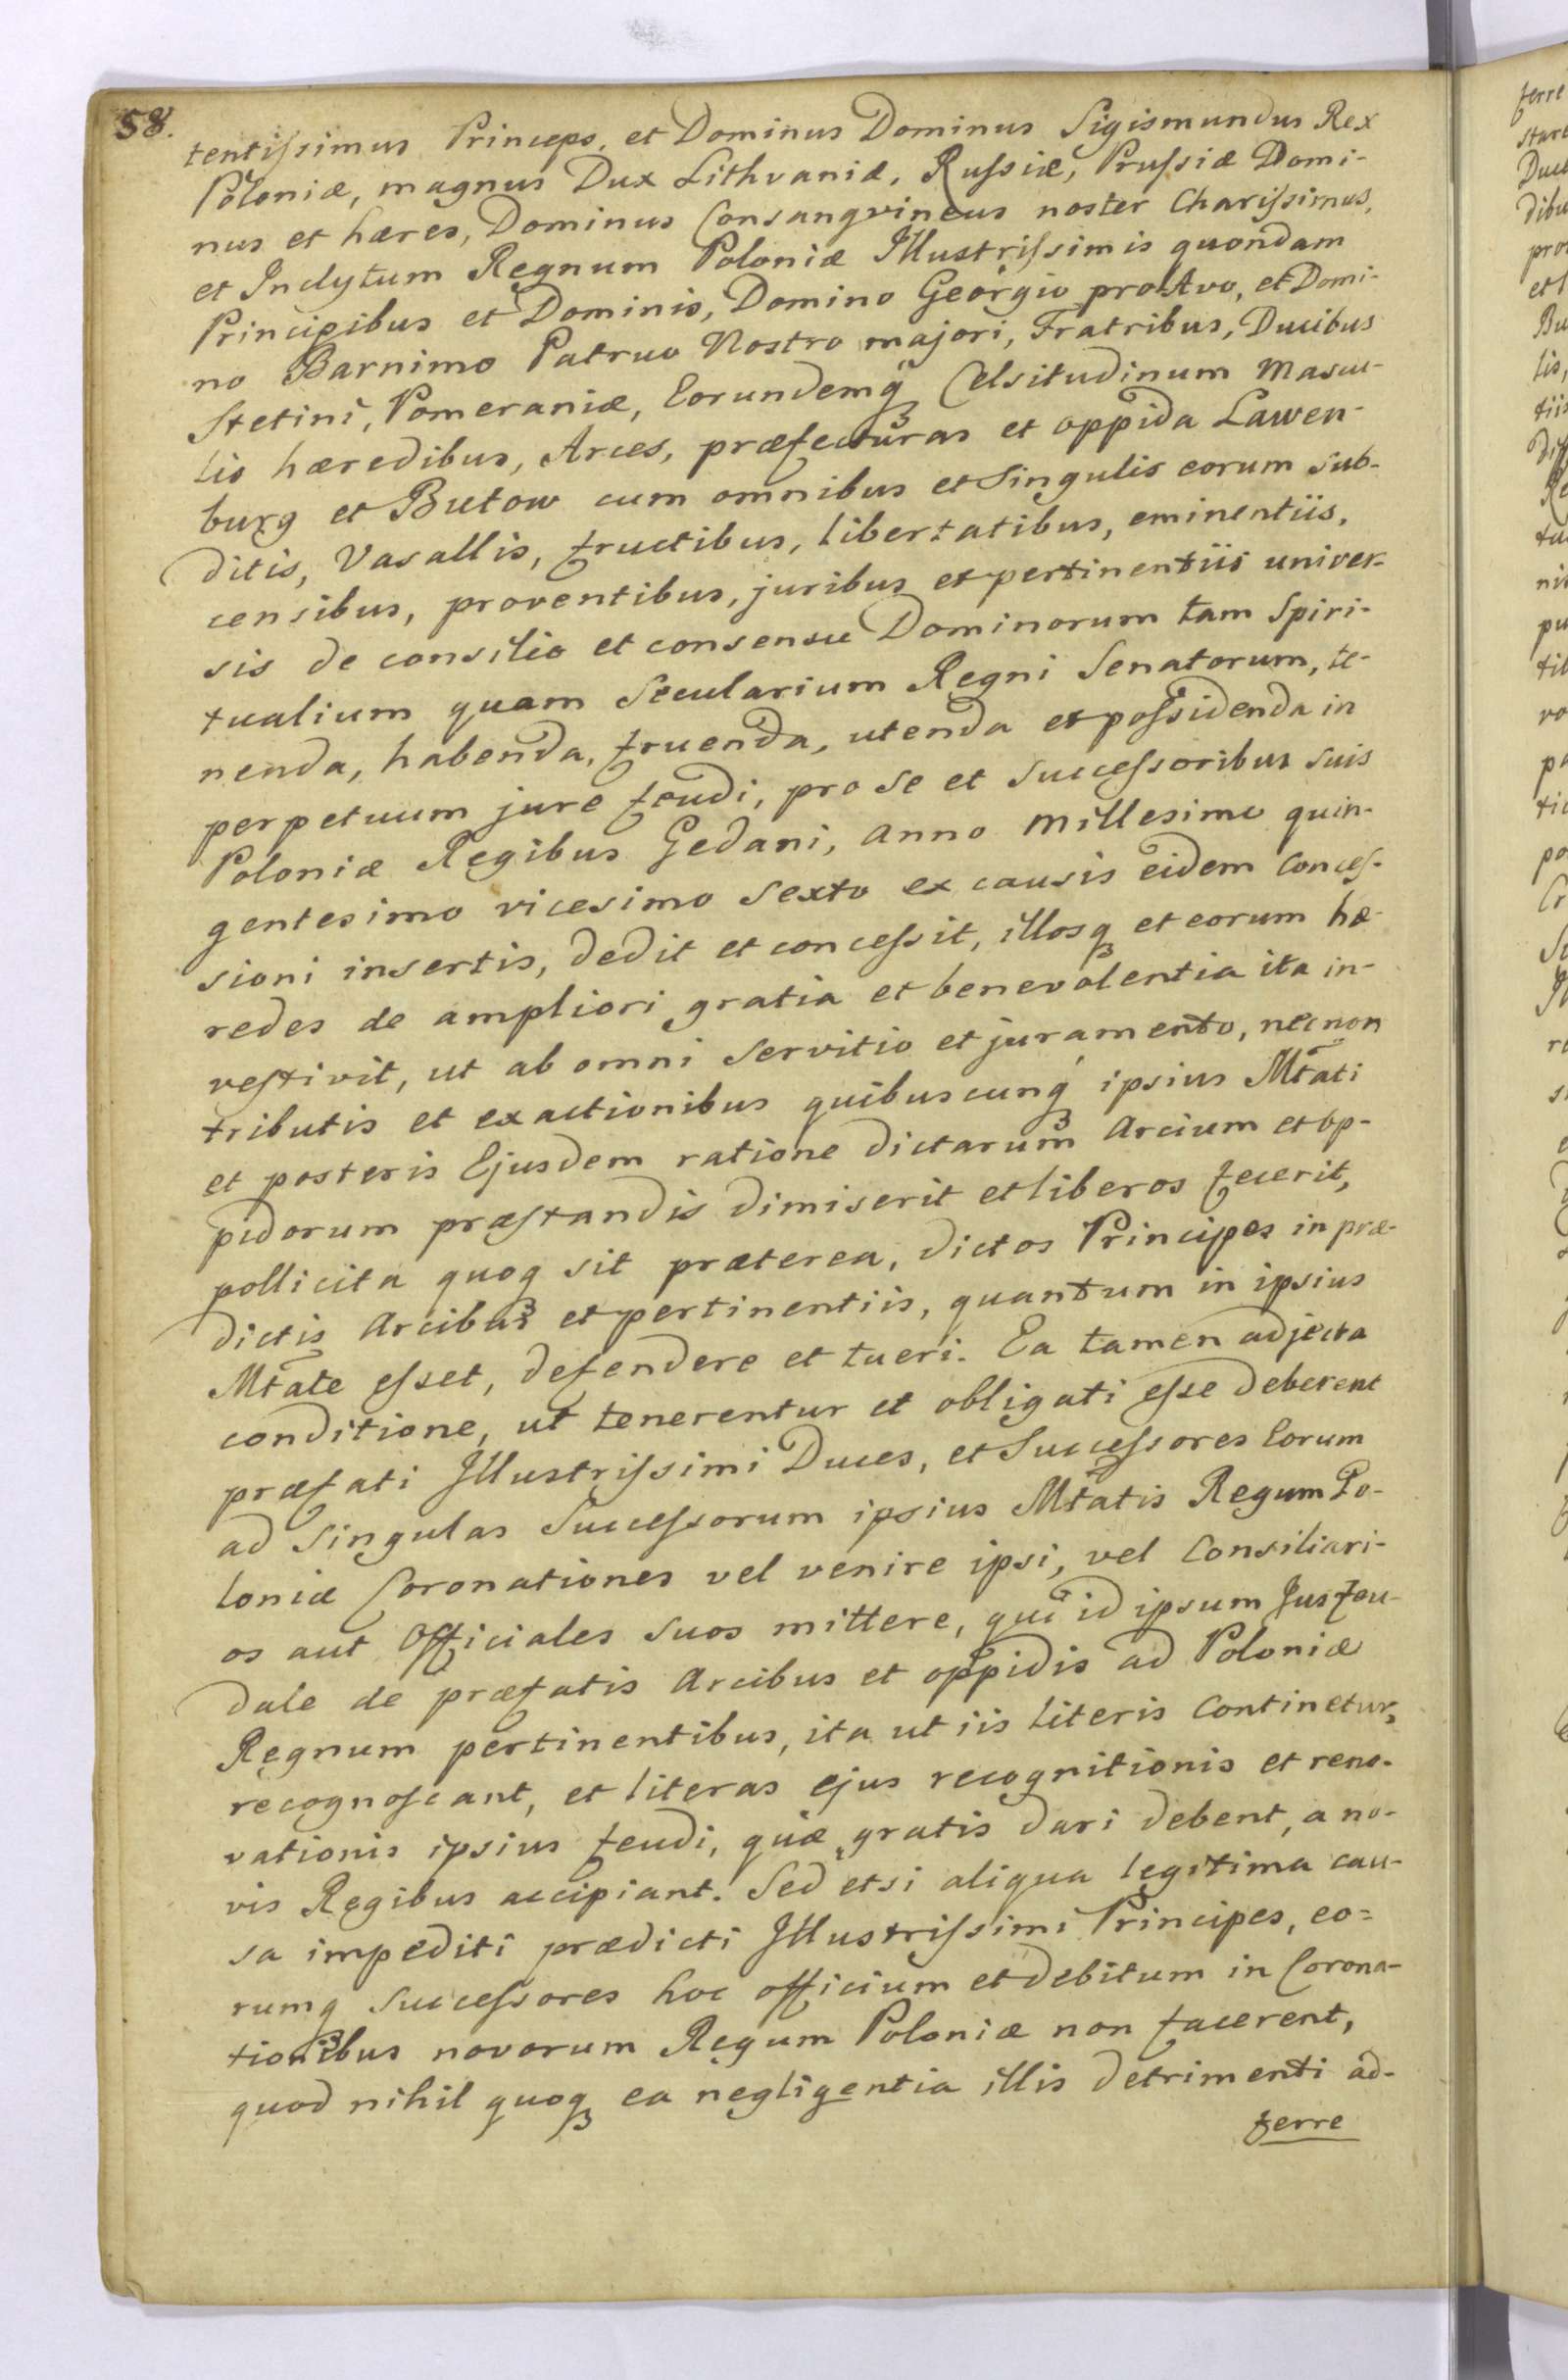 58.
tentissimus Princeps, et Dominus Dominus Sigismundus Rex
Poloniæ, magnus Dux Lithvaniæ, Russiæ, Prussiæ Domi-
nus et hæres, Dominus Consangvineus noster Charissimus,
et Inclytum Regnum Poloniæ Illustrissimis quondam
Principibus et Dominis, Domino Georgio proAvo, et Domi-
no Barnimo Patruo Nostro majori, Fratribus, Ducibus
Stetini, Pomeraniæ, Eorundemq3 Celsitudinum Mascu-
lis hæredibus, Arces, præfecturas et oppida Lawen-
burg et Butow cum omnibus et Singulis eorum sub-
ditis, Vasallis, fructibus, libertatibus, eminentiis,
censibus, proventibus, juribus et pertinentiis univer-
sis de consilio et consensu Dominorum tam Spiri-
tualium quam Secularium Regni Senatorum, te-
nenda, habenda, fruenda, utenda et possidenda in
perpetuum jure feudi, pro se et Successoribus suis
Poloniæ Regibus Gedani, anno Millesimo quin-
gentesimo vicesimo Sexto ex causis eidem Conces-
sioni insertis, dedit et concessit, illosq3 et eorum hæ-
redes de ampliori gratia et benevolentia ita in-
vestivit, ut ab omni Servitio et juramento, necnon
tributis et exactionibus quibuscunq3 ipsius Mtati
et posteris Ejusdem ratione dictarum Arcium et op-
pidorum præstandis dimiserit et liberos fecerit,
pollicita quoq3 sit præterea, dictos Principes in præ-
dictis Arcibus et pertinentiis, quantum in ipsius
Mtate esset, defendere et tueri. Ea tamen adjecta
conditione, ut tenerentur et obligati esse deberent
præfati Illustrissimi Duces, et Successores Eorum
ad Singulas Successorum ipsius Mtatis Regum Po-
loniæ Coronationes vel venire ipsi, vel Consiliari-
os aut Officiales suos mittere, qui id ipsum Jus feu-
dale de præfatis Arcibus et oppidis ad Poloniæ
Regnum pertinentibus, ita ut iis literis Continetur,
recognoscant, et literas ejus recognitionis et reno-
vationis ipsius feudi, quæ gratis dari debent, a no-
vis Regibus accipiant. Sed etsi aliqua legitima cau-
sa impediti prædicti Illustrissimi Principes, eo=
rumq3 Successores hoc officium et debitum in Corona-
tionibus novorum Regum Poloniæ non facerent,
quod nihil quoq3 ea negligentia illis detrimenti ad-
ferre